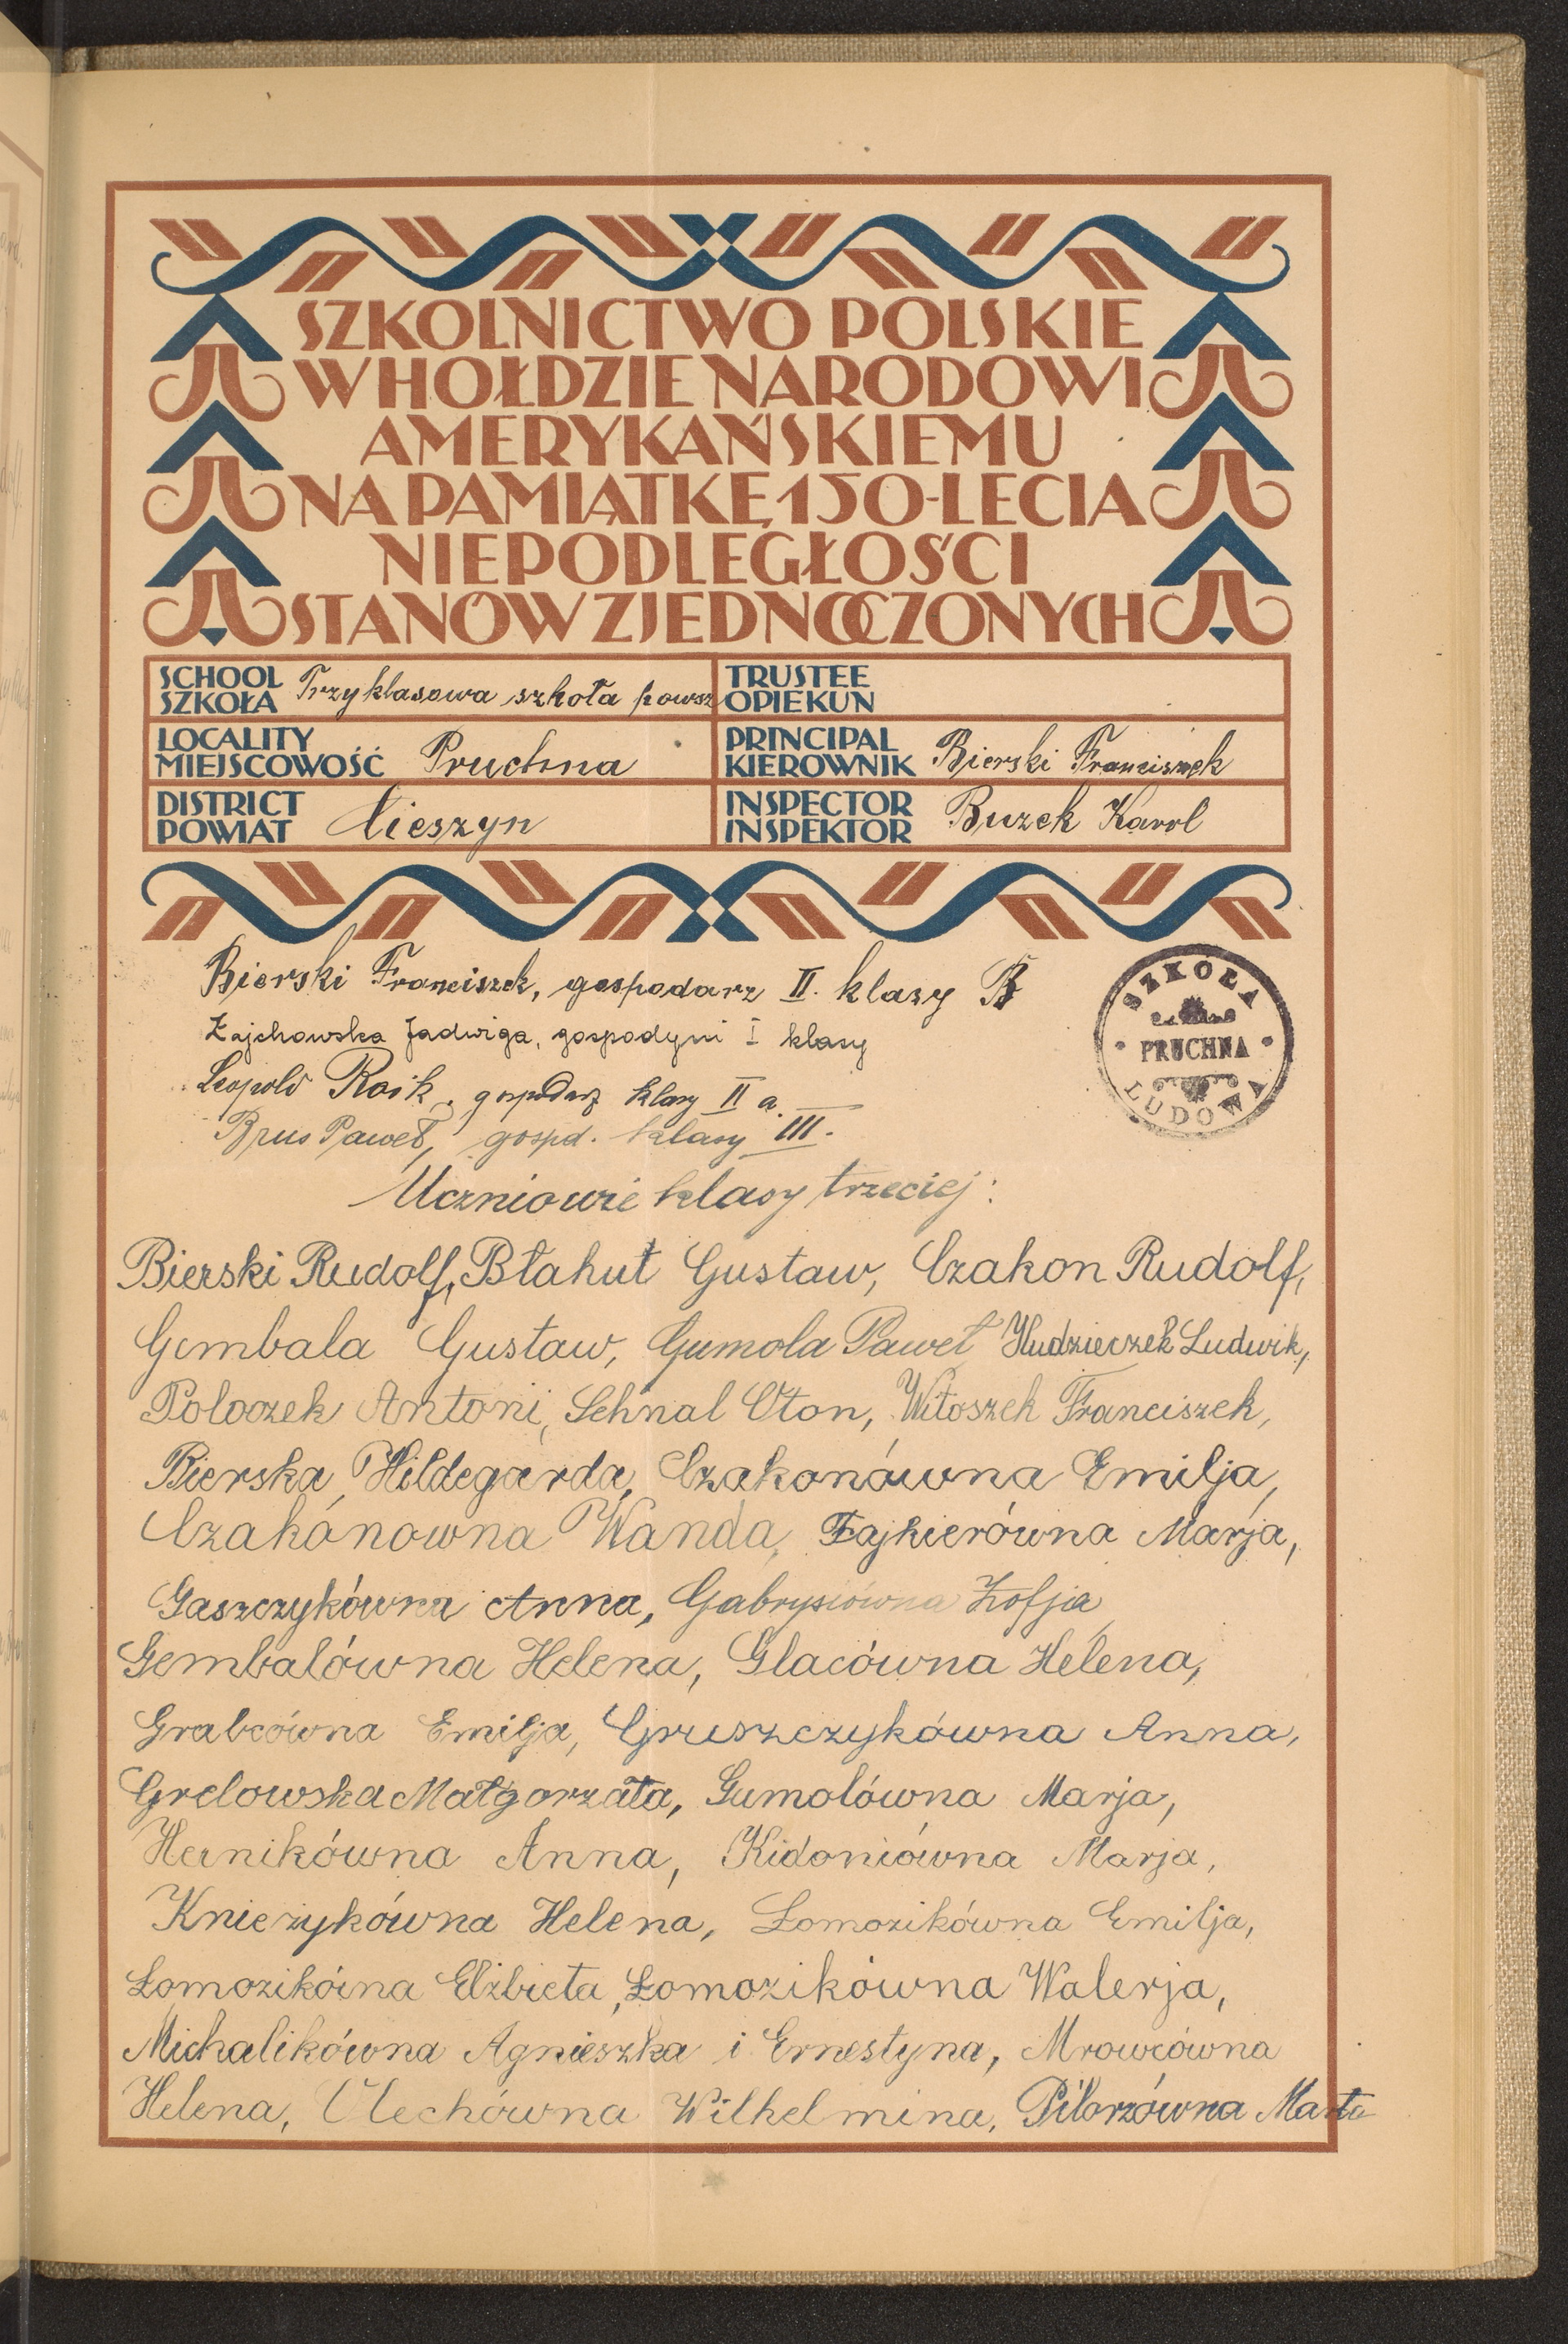 SZKOLNICTWO POLSKIE
W HOŁDZIE NARODOWI
AMERYKAŃSKIEMU
NA PAMIĄTKĘ 150-LECIA
NIEPODLEGŁOŚCI
STANÓW ZJEDNOCZONYCH
SCHOOL
SZKOŁA Trzyklasowa szkoła powsz
TRUSTEE
OPIEKUN
LOCALITY
MIEJSCOWOŚĆ Pruchna
PRINCIPAL
KIEROWNIK Bierski Franciszek
DISTRICT
POWIAT Cieszyn
INSPECTOR
INSPEKTOR Buzek Karol
Bierski Franciszek, gospodarz II. klasy B
Zajchowska Jadwiga, gospodyni I klasy
Leopold Roik, gospodarz klasy II a
Brus Paweł, gospd. klasy III.
SZKOŁA
PRUCHNA
LUDOWA
Uczniowie klasy trzeciej:
Bierski Rudolf, Błahut Gustaw, Czakon Rudolf,
Gembala Gustaw, Gumola Paweł Hudzieczek Ludwik,
Poloczek Antoni, Sehnal Oton, Witoszek Franciszek,
Bierska Hildegarda, Czakonówna Emilja,
Czakónowna Wanda, Fajkierówna Marja,
Gaszczykówna Anna, Gabrysiówna Zofja
Gembalówna Helena, Glacówna Helena,
Grabcówna Emilja, Gruszczykówna Anna,
Grelowska Małgorzata, Gumolówna Marja,
Hernikówna Anna, Kidoniówna Marja,
Knieżykówna Helena, Łomozikówna Emilja,
Łomozikóna Elżbieta, Łomozikówna Walerja,
Michalikówna Agnieszka i Ernestyna, Mrowcówna
Helena, Olechówna Wilhelmina, Pilorzówna Marta